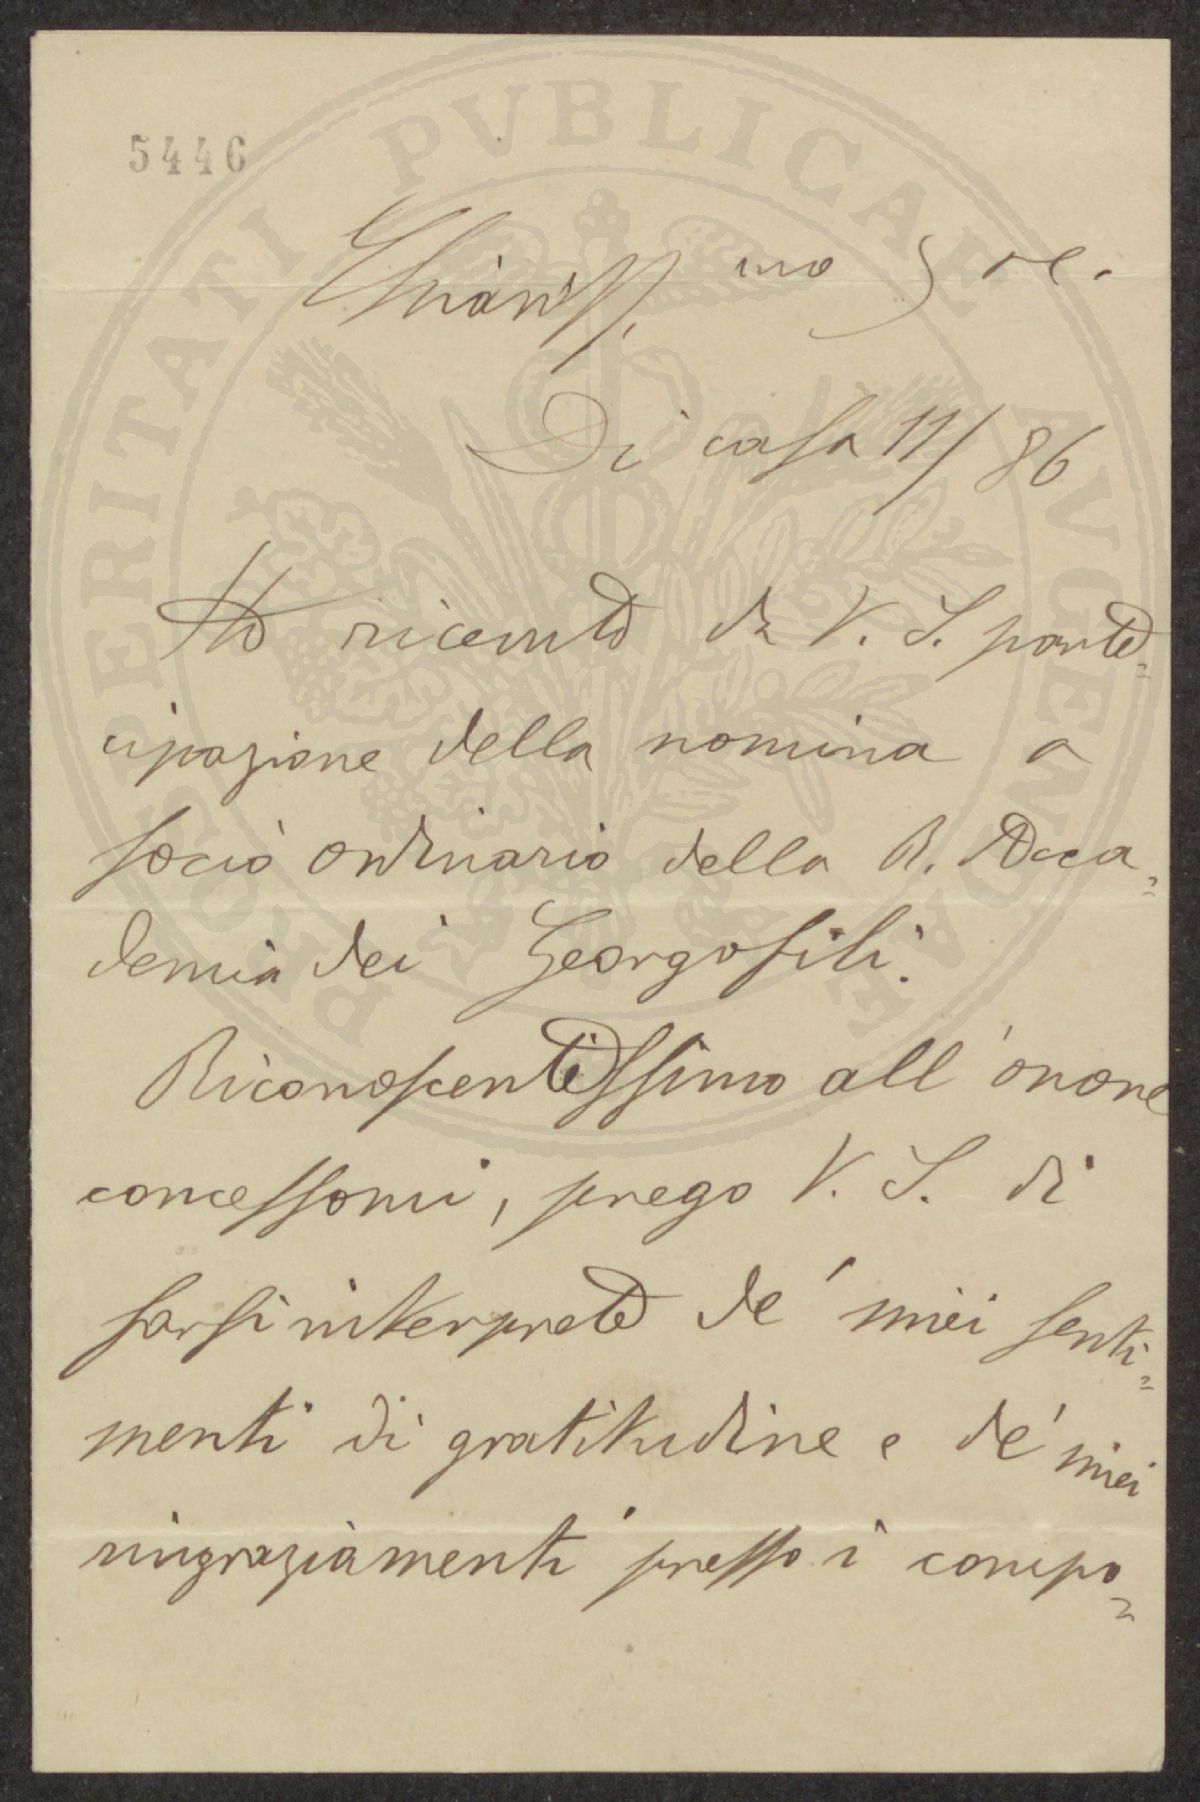 5446
PROSPERITATI PVBLICAE AVGENDAE
Chiariss.mo Sre.
Di casa 11/86
Ho ricevuto da V. S. parte=
cipazione della nomina a
socio ordinario della R. Acca=
demia dei Georgofili.
Riconoscentissimo all'onore
concessomi, prego V. S. di
farsi interprete de' miei senti=
menti di gratitudine e de' miei
ringraziamenti presso i compo=